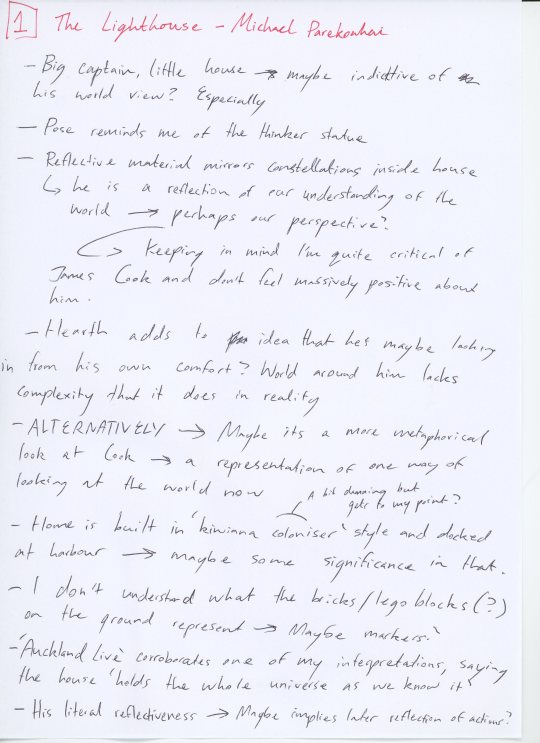 1 The Lighthouse - Michael Parekowhai
- Big captain, little house → maybe indictive of
his world view? Especially
- Pose reminds me of the thinker statue
- Reflective material mirrors constellations inside house
↳ he is a reflection of our understanding of the
world → perhaps our perspective?
↳ Keeping in mind I'm quite critical of
James Cook and don't feel massively positive about
him.
- Hearth adds to idea that hes maybe looking
in from his own comfort? World around him lacks
complexity that it does in reality
- ALTERNATIVELY → Maybe its a more metaphorical
look at Cook → a representation of one way of
looking at the world now
A bit damning but
gets to my point?
- Home is built in 'kiwiana coloniser' style and docked
at harbour → maybe some significance in that.
- I don't understand what the bricks/lego blocks(?)
on the ground represent → Maybe markers?
- 'Auckland Live' corroborates one of my interpretations, saying
the house 'holds the whole universe as we know it'
- His literal reflectiveness → Maybe implies later reflection of actions?